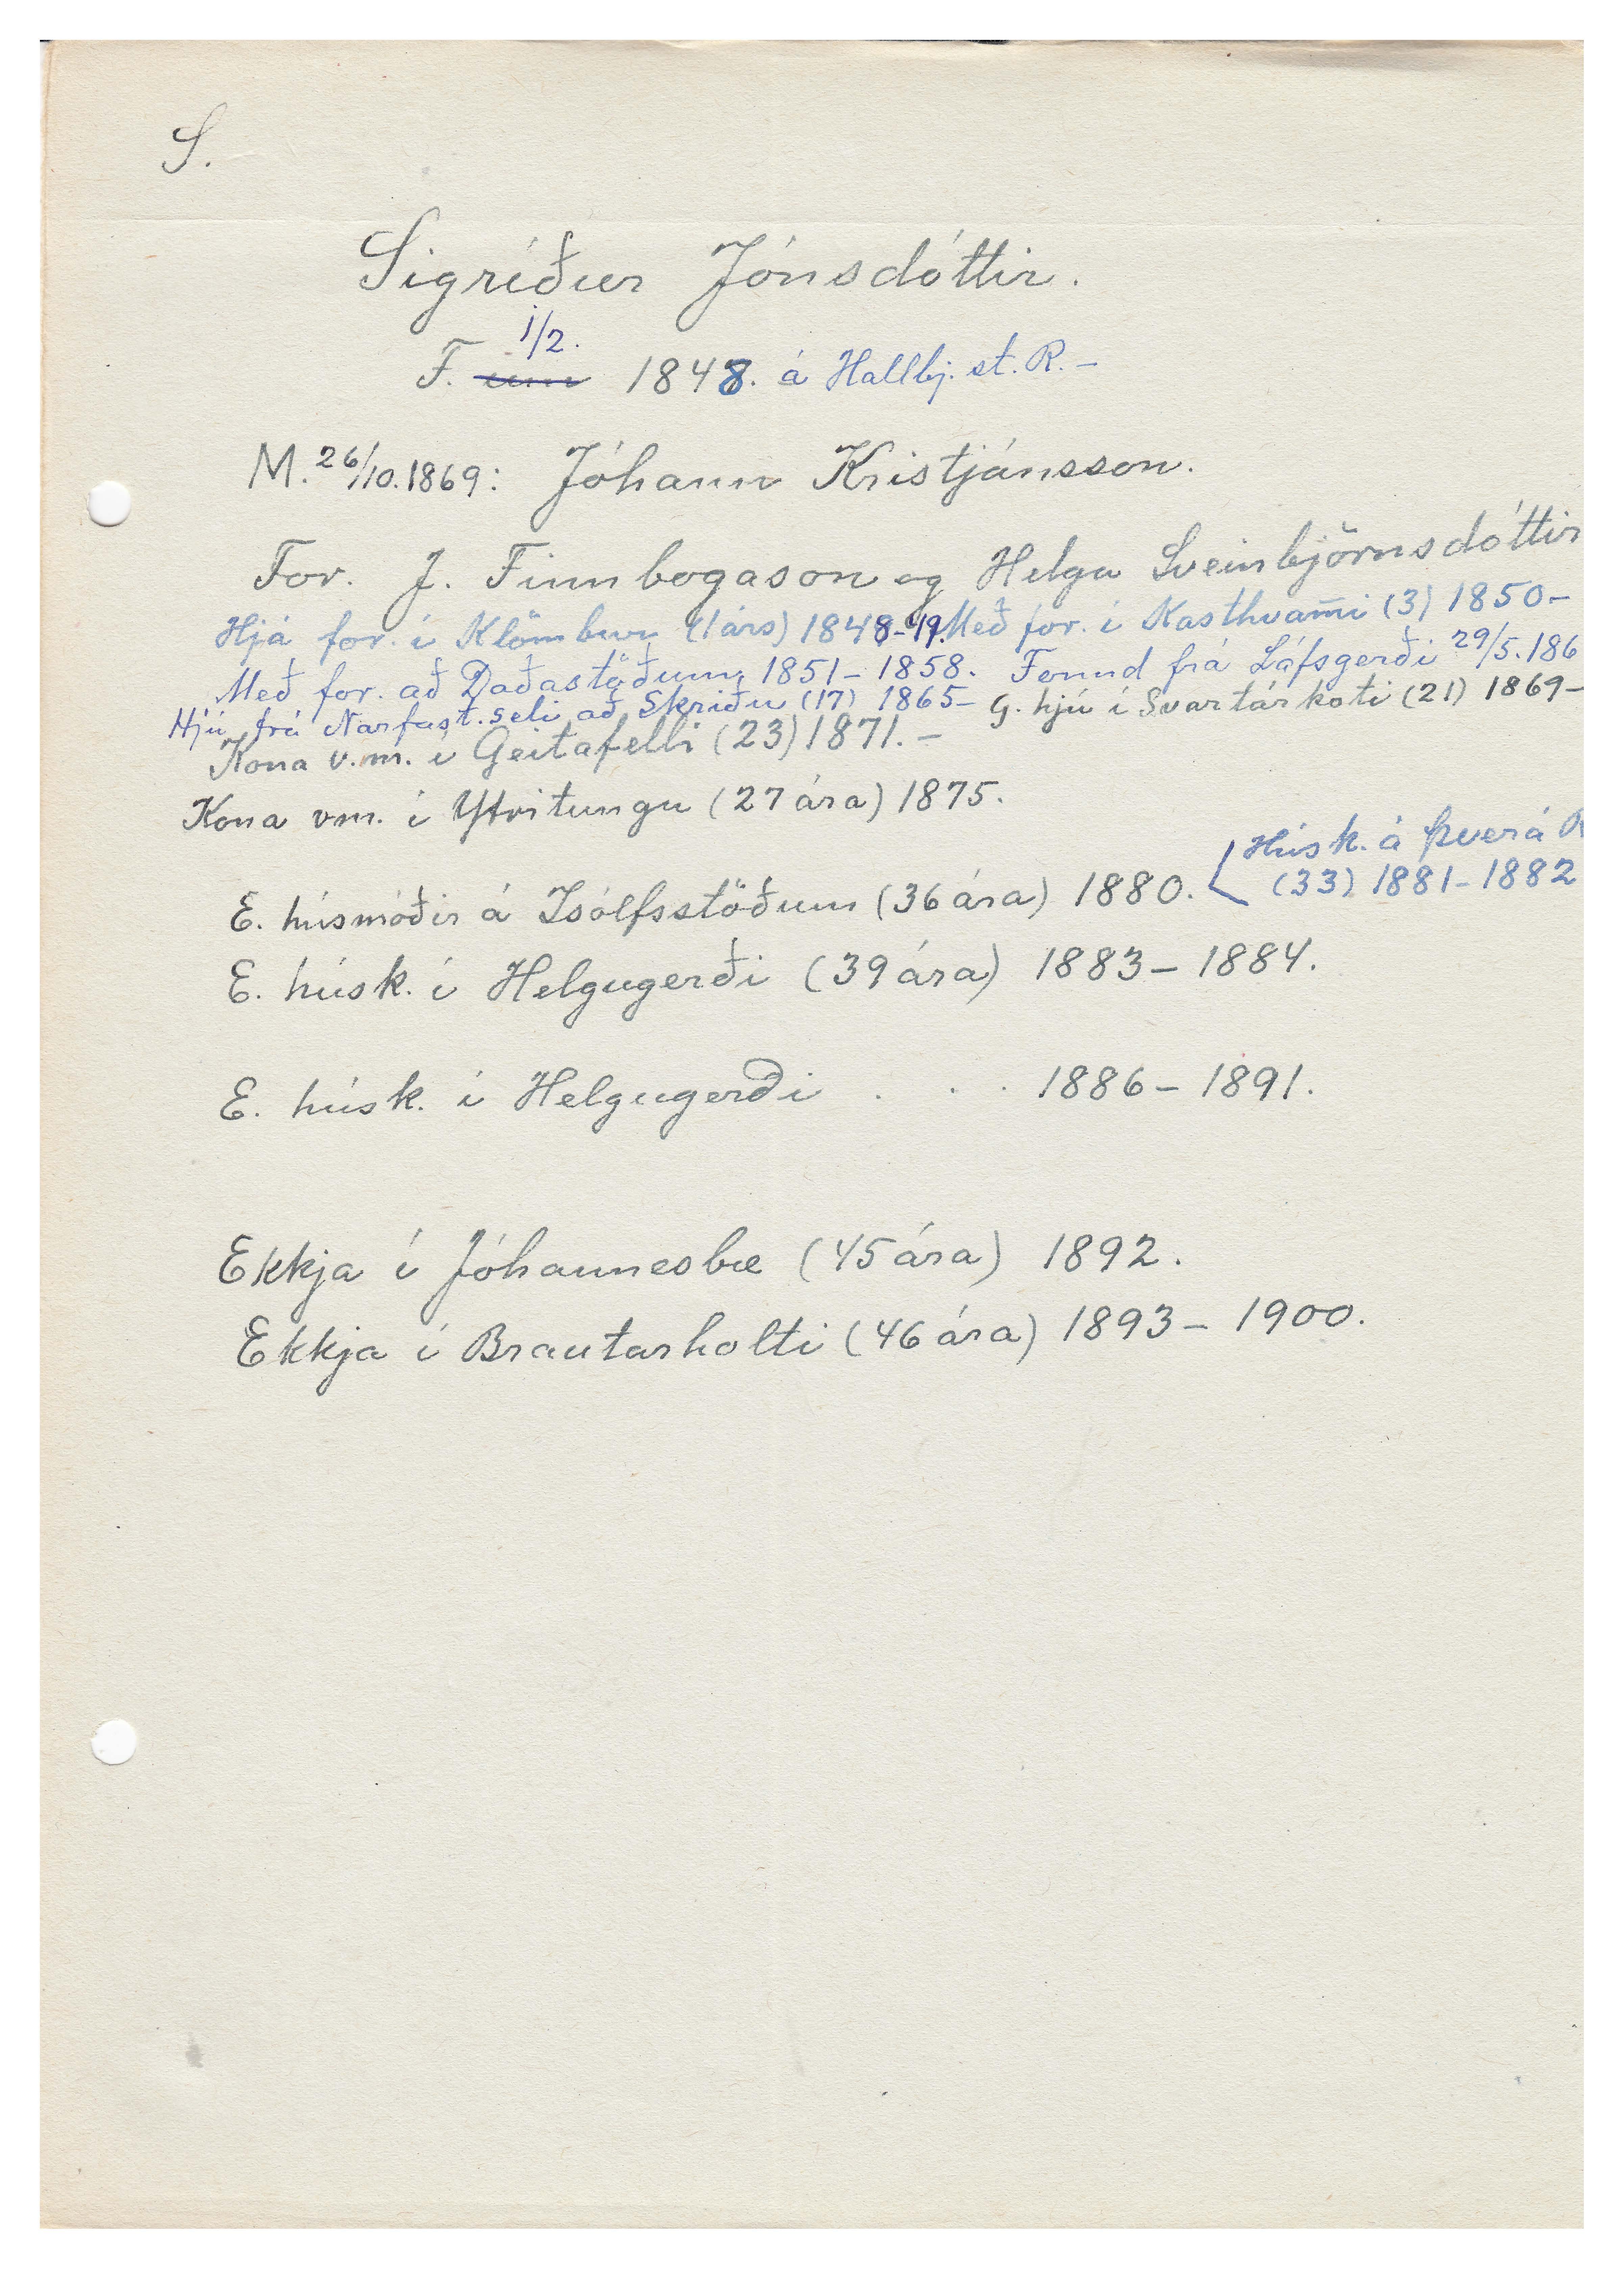 S.
Sigríður Jónsdóttir.
1/2.
F. um 1848. á Hallbj. st. R. –
M. 26/10. 1869: Jóhann Kristjánsson.
For. J. Finnbogason og Helga Sveinbjörnsdóttir
Hjá for. í Klömbur (1 árs) 1848-49. Með for. í Kasthvam̄i (3) 1850–
Með for. að Daðastöðum 1851 – 1858. Fermd frá Láfsgerði 29/5. 186
Hjú frá Narfast. seli að Skriðu (17) 1865 – G. hjú í Svartárkoti (21) 1869–
Kona v.m. í Geitafelli (23) 1871. –
Kona vm. í Ytritungu (27 ára) 1875.
Húsk. á Þverá R
E. húsmóðir á Ísólfsstöðum (36 ára) 1880. (33) 1881 – 1882
E. húsk. í Helgugerði (39 ára) 1883 – 1884.
E. húsk. í Helgugerði . . . 1886 – 1891.
Ekkja í Jóhannesbæ (45 ára) 1892.
Ekkja í Brautarholti (46 ára) 1893 – 1900.